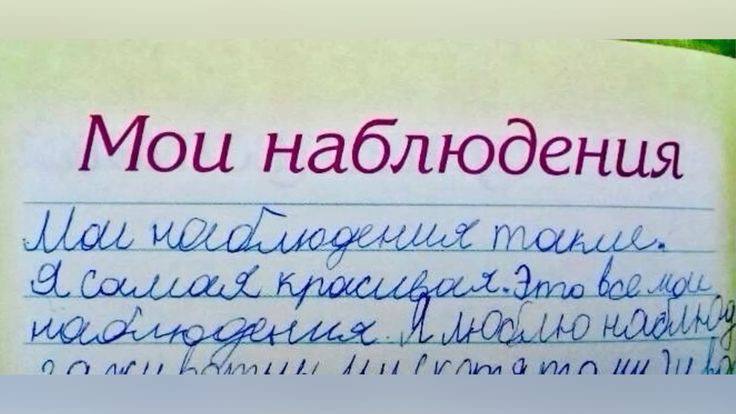 Мои наблюдения
Мои наблюдения такие.
Я самая красивая. Это все мои
наблюдения. Я люблю наблюд
за